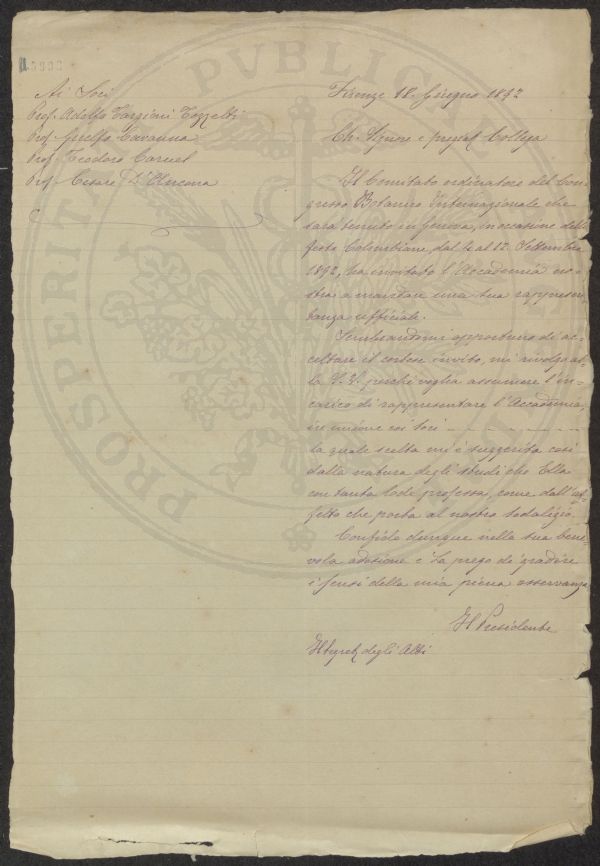 Ai Soci
Prof. Adolfo Targioni Tozzetti
Prof. Guelfo Cavanna
Prof. Teodoro Caruel
Prof. Cesare D'Ancona
Firenze 18. Giugno 1892
Ch. Signore e pregiat. Collega
Il Comitato ordinatore del Con-
gresso Botanico Internazionale che
sarà tenuto in Genova, in occasione delle
feste Colombiane, dal 4 al 12. Settembre
1892, ha invitato l'Accademia no-
stra a mandare una sua rappresen-
tanza ufficiale.
Sembrandomi opportuno di ac-
cettare il cortese invito, mi rivolgo al-
la S. V. perchè voglia assumere l'in-
carico di rappresentare l'Accademia,
in unione coi soci
la quale scelta mi è suggerita così
dalla natura degli studi che Ella
con tanta lode professa, come dall'af-
fetto che porta al nostro sodalizio.
Confido dunque nella sua bene-
vola adesione e La prego di gradire
i sensi della mia piena osservanza
Il Presidente
Il Segret. degli Atti
PROSPERITA PVBLICAE